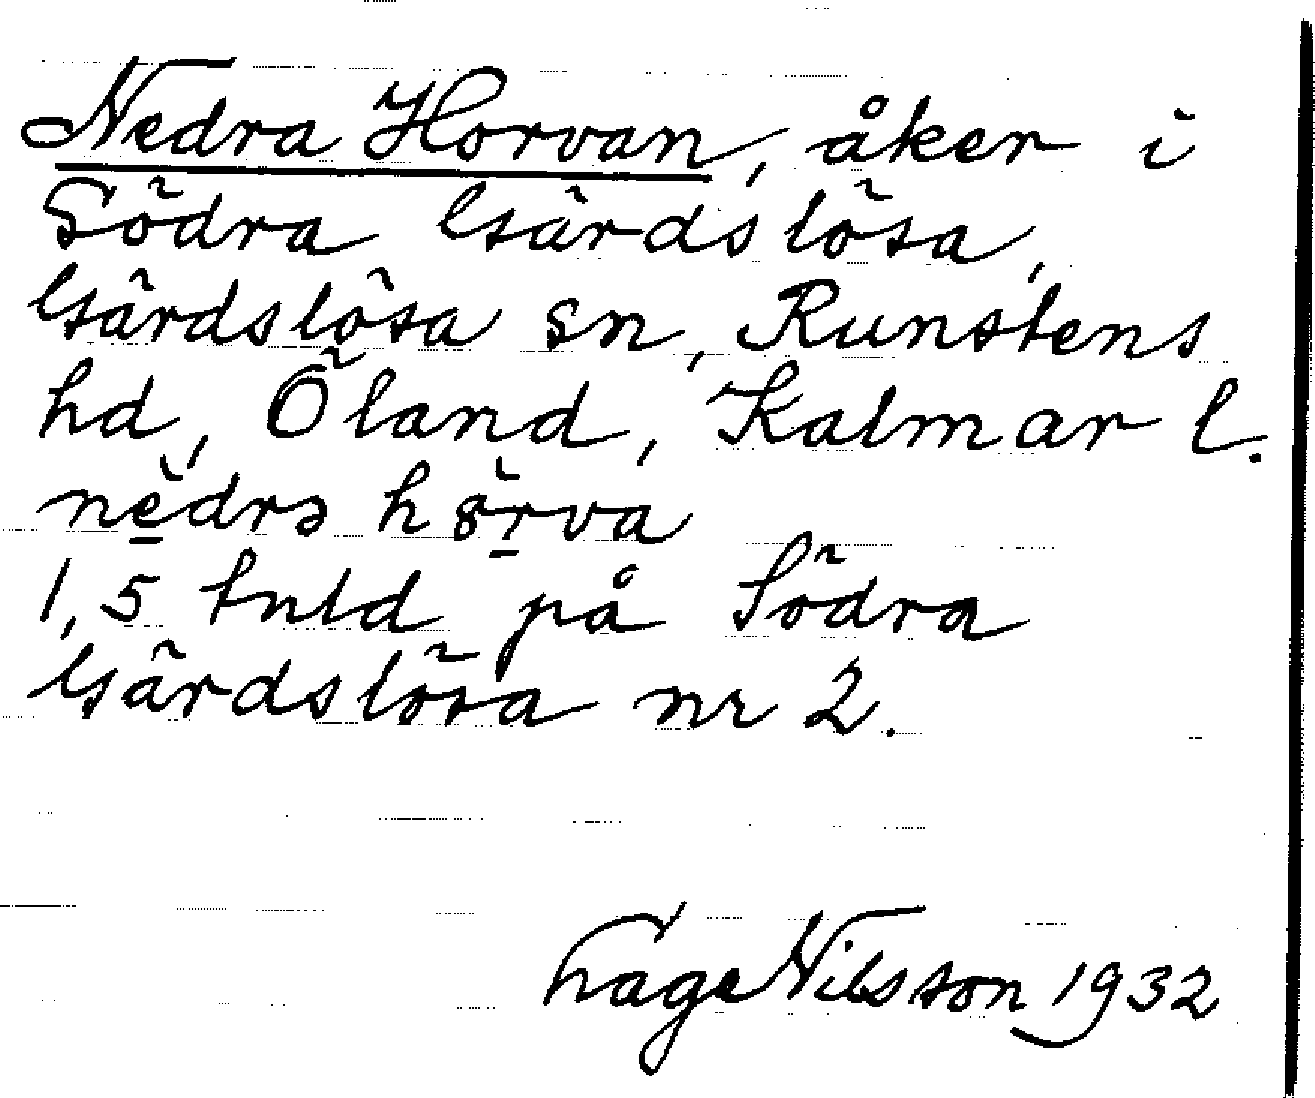 Nedra Horvan, åker i
Södra Gärdslösa,
Gärdslösa sn, Runstens
hd, Öland, Kalmar l.
nè̱drə höṟva
1,5 tnld på Södra
Gärdslösa nr 2.
Tage Nilsson 1932